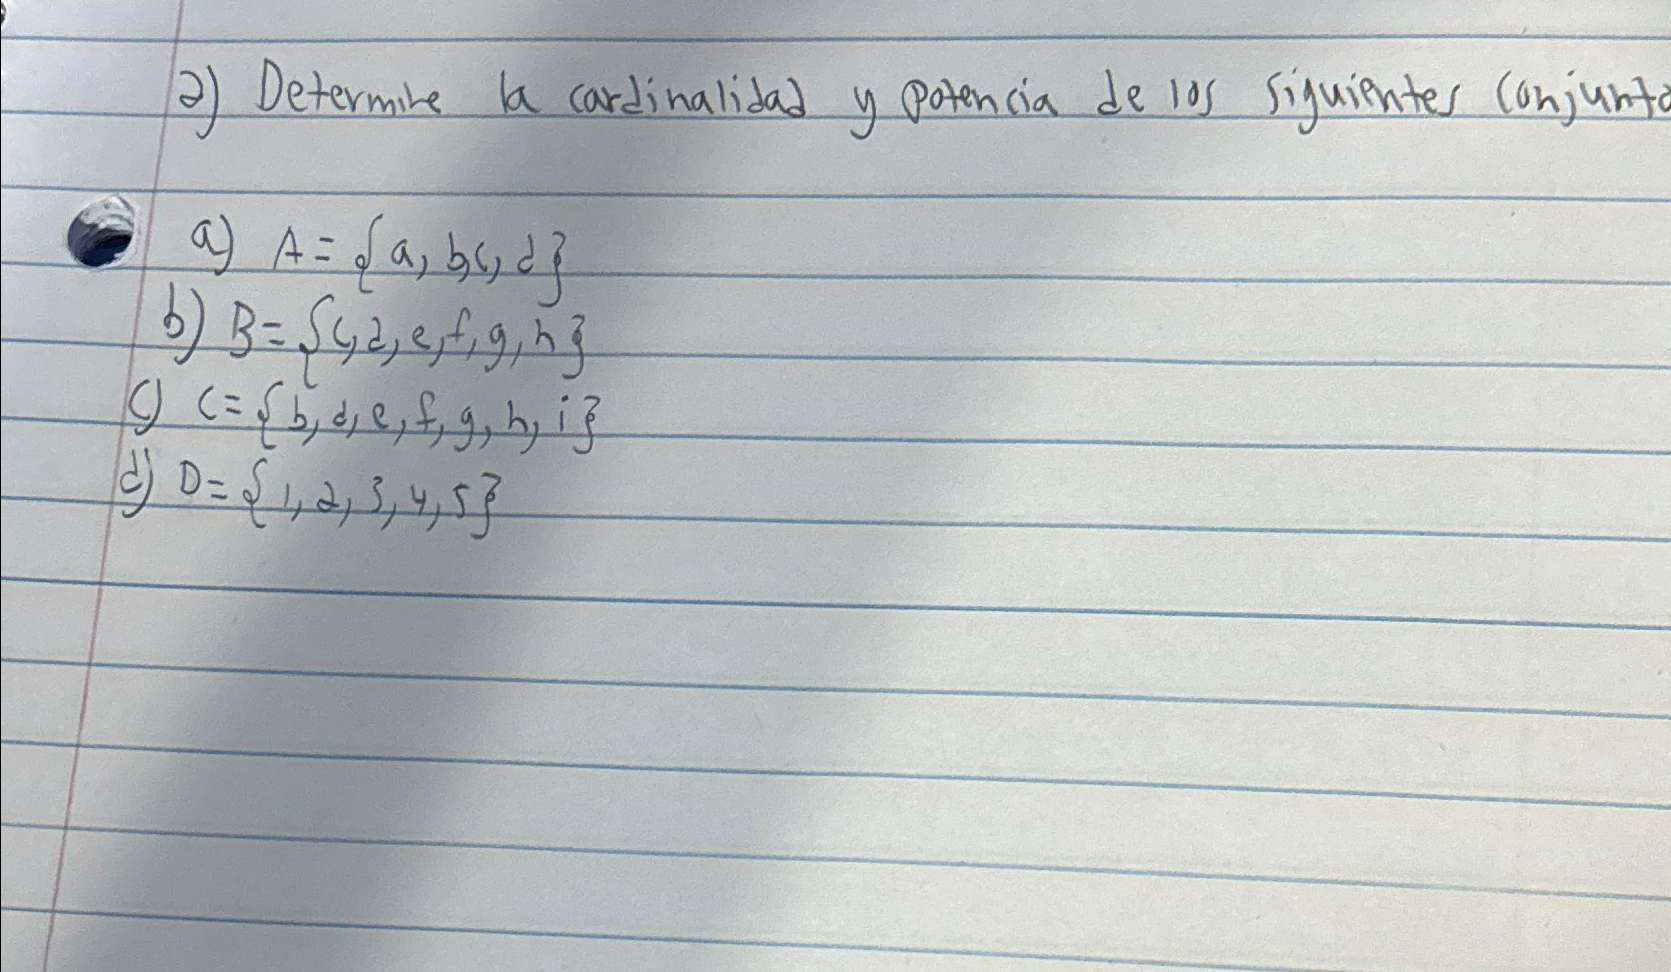 2) Determine la cardinalidad y potencia de los siguientes conjunto
a) A = {a, b, c, d}
b) B = {c, d, e, f, g, h}
c) C = {b, d, e, f, g, h, i}
d) D = {1, 2, 3, 4, 5}